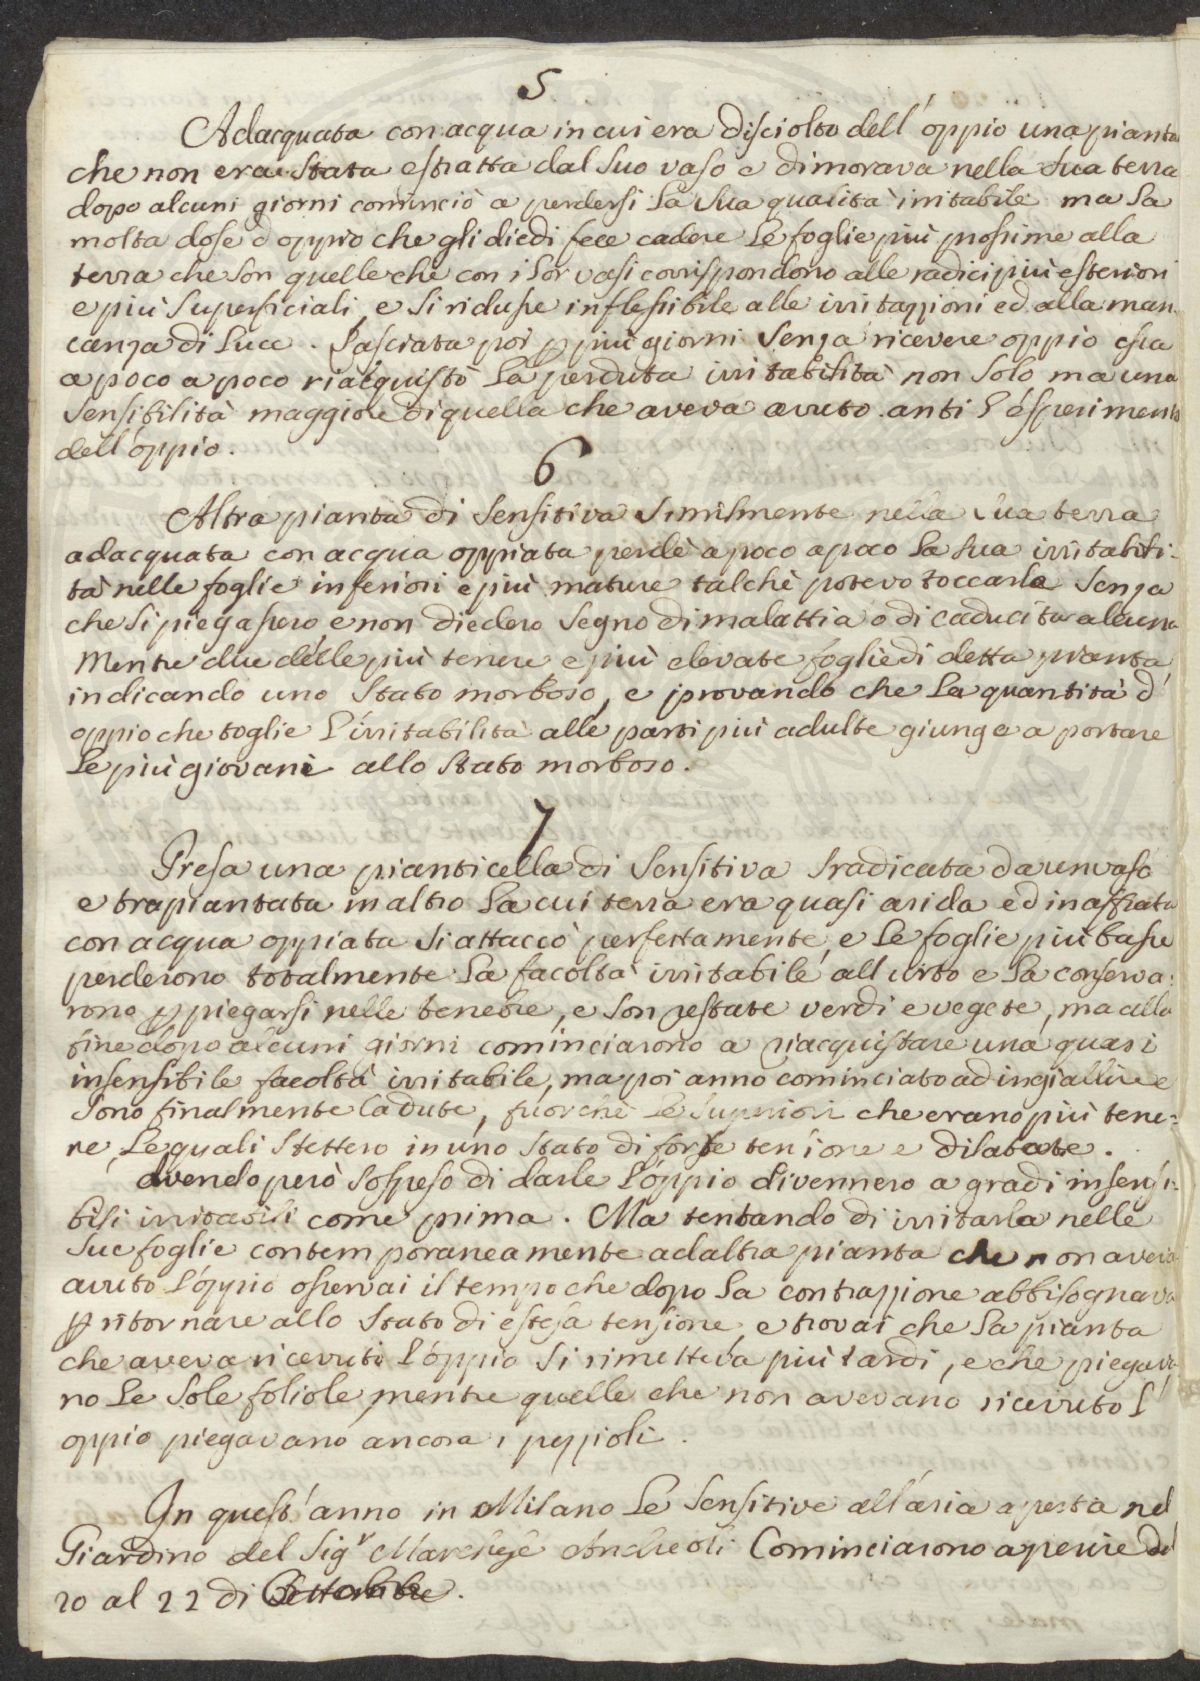 5
Adacquata con acqua in cui era disciolto dell'oppio una pianta
che non era stata estratta dal suo vaso e dimorava nella sua terra
dopo alcuni giorni cominciò a perdersi la sua qualità irritabile ma la
molta dose d'oppio che gli diedi fece cadere le foglie più prossime alla
terra che son quelle che con i lor vasi corrispondono alle radici più esteriori
e più superficiali, e si ridusse inflessibile alle irritazzioni ed alla man
canza di luce. Lasciata poi p più giorni senza ricevere oppio essa
a poco a poco riacquistò la perduta irritabilità non solo ma una
sensibilità maggiore di quella che aveva avuto anti l'esperimento
dell'oppio.
6
Altra pianta di sensitiva similmente nella sua terra
adacquata con acqua oppiata perdè a poco a poco la sua irritabili-
tà nelle foglie inferiori e più mature talchè potevo toccarle senza
che si piegassero, e non diedero segno di malattia o di caducità alcuna
Mentre due delle più tenere e più elevate foglie di detta pianta
indicando uno stato morboso, e provando che la quantità d'
oppio che toglie l'irritabilità alle parti più adulte giunge a portare
le più giovani allo stato morboso.
7
Presa una pianticella di sensitiva sradicata da un vaso
e trapiantata in altro la cui terra era quasi arida ed inaffiata
con acqua oppiata si attaccò perfettamente, e le foglie più basse
perderono totalmente la facoltà irritabile all'urto e la conserva:
rono p piegarsi nelle tenebre, e son restate verdi e vegete, ma alla
fine dopo alcuni giorni cominciarono a riacquistare una quasi
insensibile facoltà irritabile, ma poi anno cominciato ad ingiallire e
sono finalmente cadute, fuorchè le superiori che erano più tene:
re, le quali stettero in uno stato di forte tensione e dilatate.
Avendo però sospeso di darle l'oppio divennero a gradi insensi-
bili irritabili come prima. Ma tentando di irritarla nelle
sue foglie contemporaneamente ad altra pianta che non aveva
avuto l'oppio osservai il tempo che dopo la contrazzione abbisognava
p ritornare allo stato di estesa tensione, e trovai che la pianta
che aveva ricevuto l'oppio si rimetteva più tardi, e che piegava
no le sole foliole mentre quelle che non avevano ricevuto l'
oppio piegavano ancora i pezzioli.
In quest'anno in Milano le sensitive all'aria aperta nel
Giardino del Sigr Marchese Andreoli Cominciarono a perire dal
20 al 22 di Settembre.